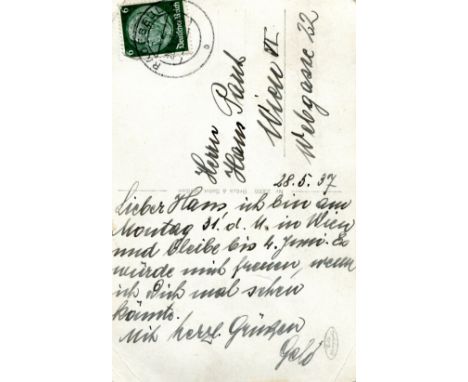 6
Deutsches Reich
6
Herrn
Hans
Wien VI
Webgasse 22
28.5.37
Lieber Hans, ich bin am
Montag 31. d. M. in Wien
und bleibe bis 4. Juni. Es
würde mich freuen, wenn
ich Dich mal sehen
könnte.
Mit herzl. Grüßen